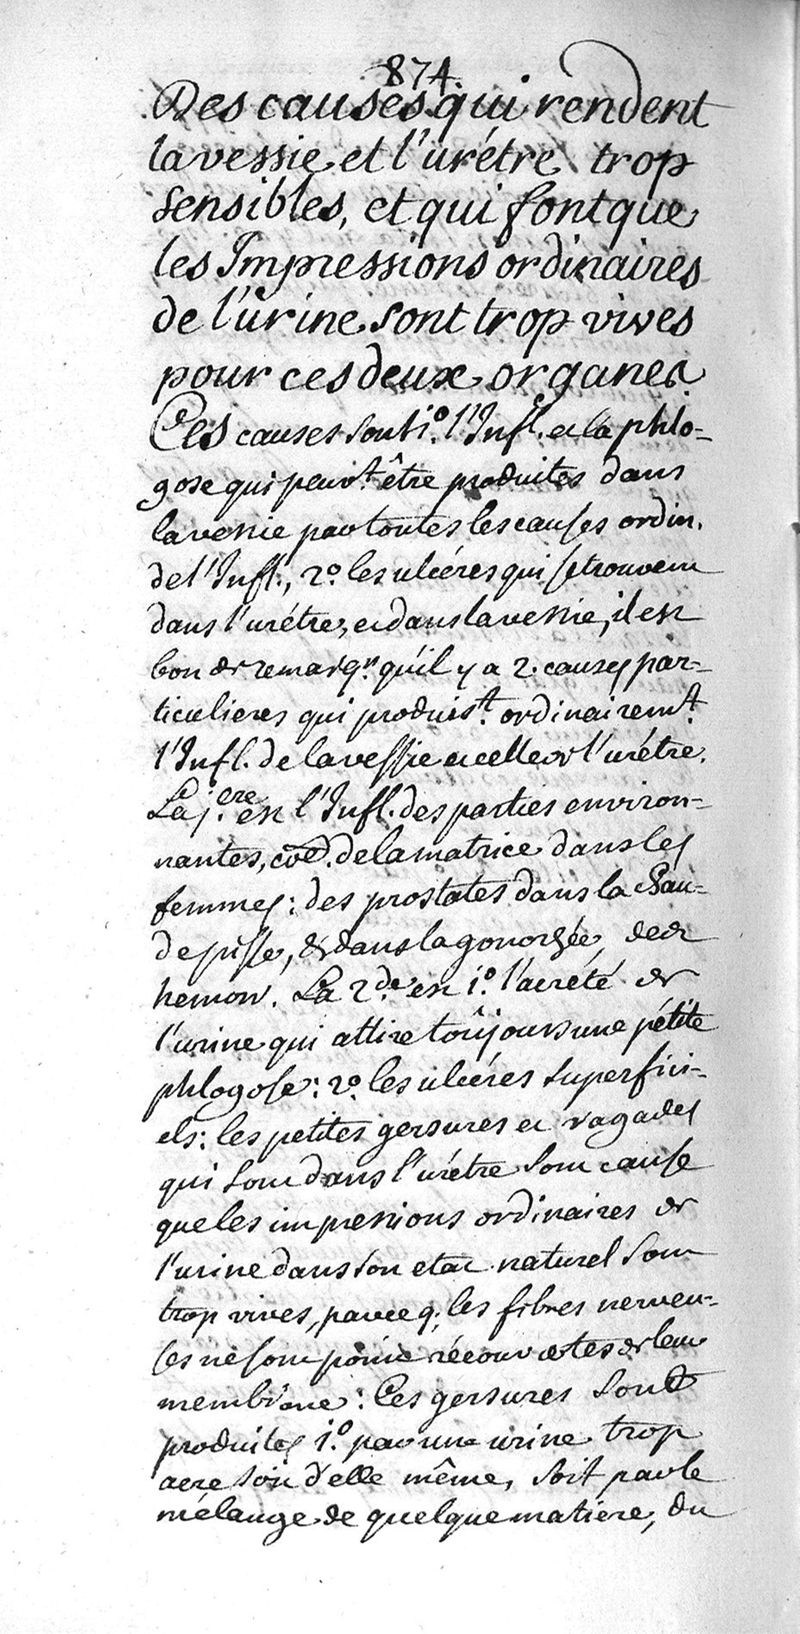 874.
Des causes qui rendent
la vessie et l'urétre trop
sensibles, et qui font que
les Impressions ordinaires
de l'urine sont trop vives
pour ces deux organes.
Ces causes sont 1.° l'Infl. et la phlo-
gose qui peuv.t être produites dans
la vessie par toutes les causes ordin.
de l'Infl., 2.° les ulcéres qui se trouvent
dans l'urétre, et dans la vessie, il est
bon de remarq.r qu'il y a 2. causes par-
ticulieres qui produis.t ordinairem.t
l'Infl. de la vessie et celle de l'urétre.
La j.ere est l'Infl. des parties environ-
nantes, coe. de la matrice dans les
femmes : des prostates dans la chau-
depisse, & dans la gonorhée,
hemorr. La 2.de est 1.° l'acreté de
l'urine qui attire toûjours une pétite
phlogose : 2.° les ulcéres superfici-
els : les petites gersures et ragades
qui sont dans l'urétre sont cause
que les impressions ordinaires de
l'urine dans son etat naturel sont
trop vives, parce q. les fibres nerveu-
ses ne sont point récouvertes de leur
membrane : Ces gersures sont
produites 1.° par une urine trop
acre soit d'elle même, soit par le
mélange de quelque matiére, du